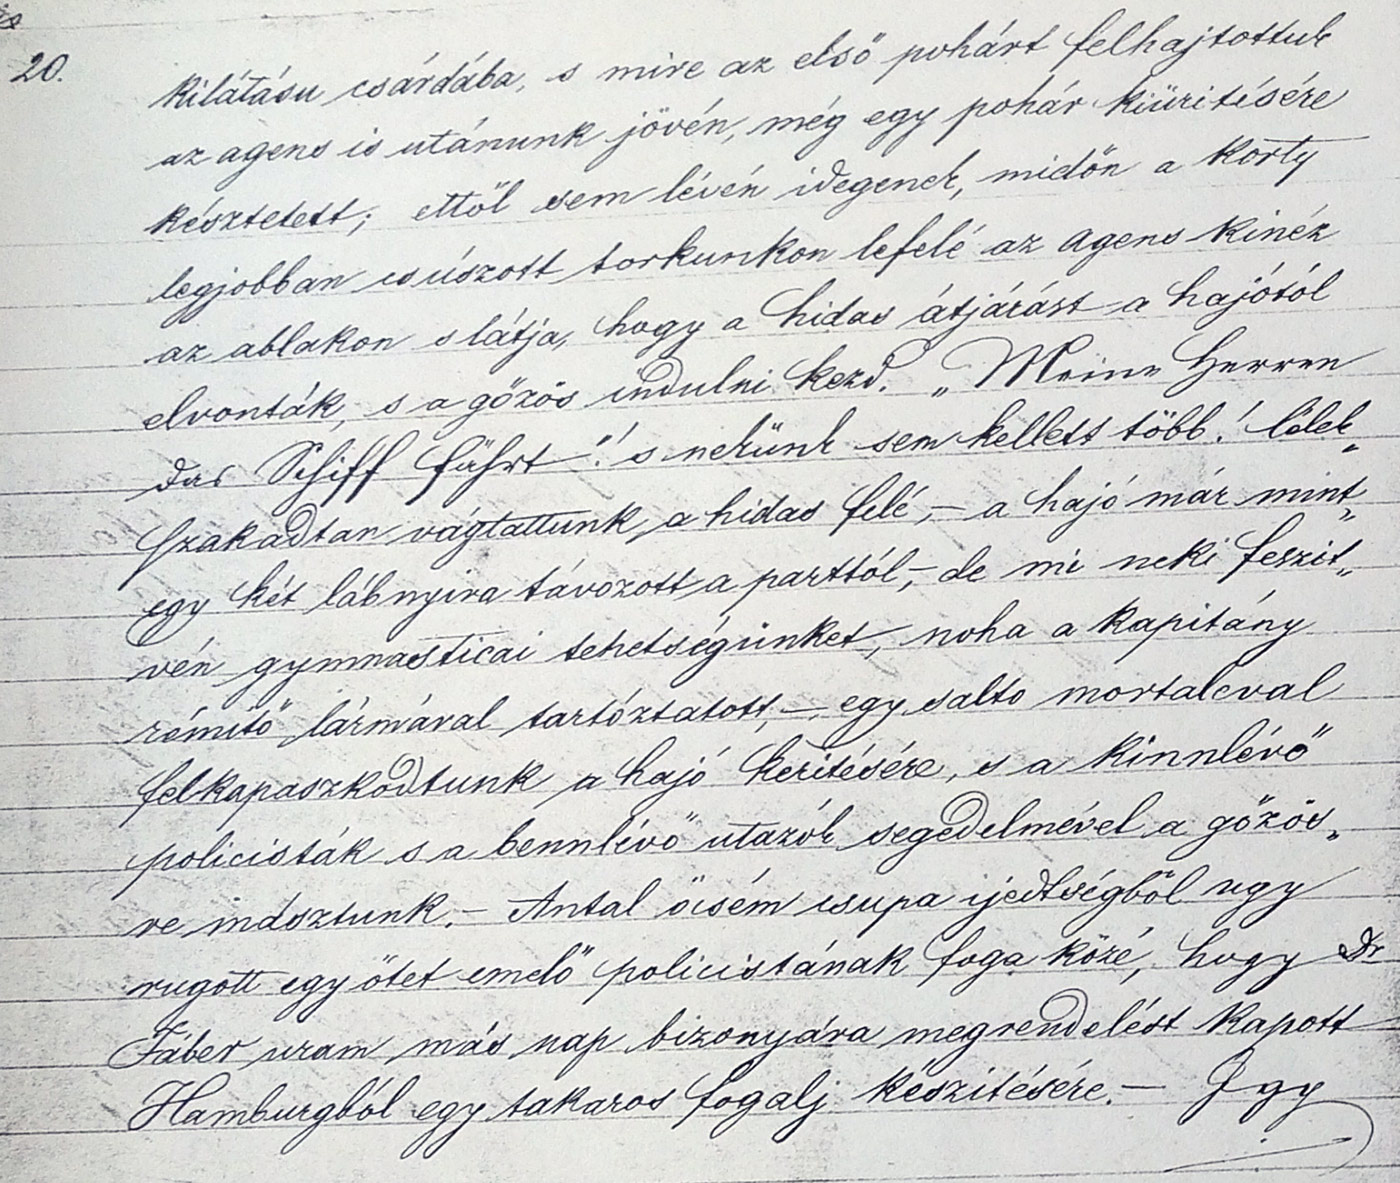 20.
kilátásu csárdába, s mire az első pohárt felhajtottuk
az agens is utánunk jövén, még egy pohár kiüritésére
késztetett; ettől sem lévén idegenek, midőn a korty
legjobban csúszott torkunkon lefelé az agens kinéz
az ablakon s látja, hogy a hidas átjárást a hajótól
elvonták, s a gőzös indulni kezd. „Meine Herren
das Schiff fährt"! s nekünk sem kellett több! lélek„
szakadtan vágtattunk a hidas felé, – a hajó már mint„
egy két lábnyira távozott a parttól, – de mi neki feszit„
vén gymnasticai tehetségünket, noha a kapitány
rémitő lármával tartóztatott, – egy salto mortaleval
felkapaszkodtunk a hajó keritésére, s a kinnlévő
policisták s a bennlévő utazók segedelmével a gőzös„
re indsztunk. – Antal öcsém csupa ijedtségből ugy
rugott egy őtet emelő policistának foga közé, hogy Dr
Fáber uram más nap bizonyára megrendelést kapott
Hamburgból egy takaros fogalj készitésére. – Igy